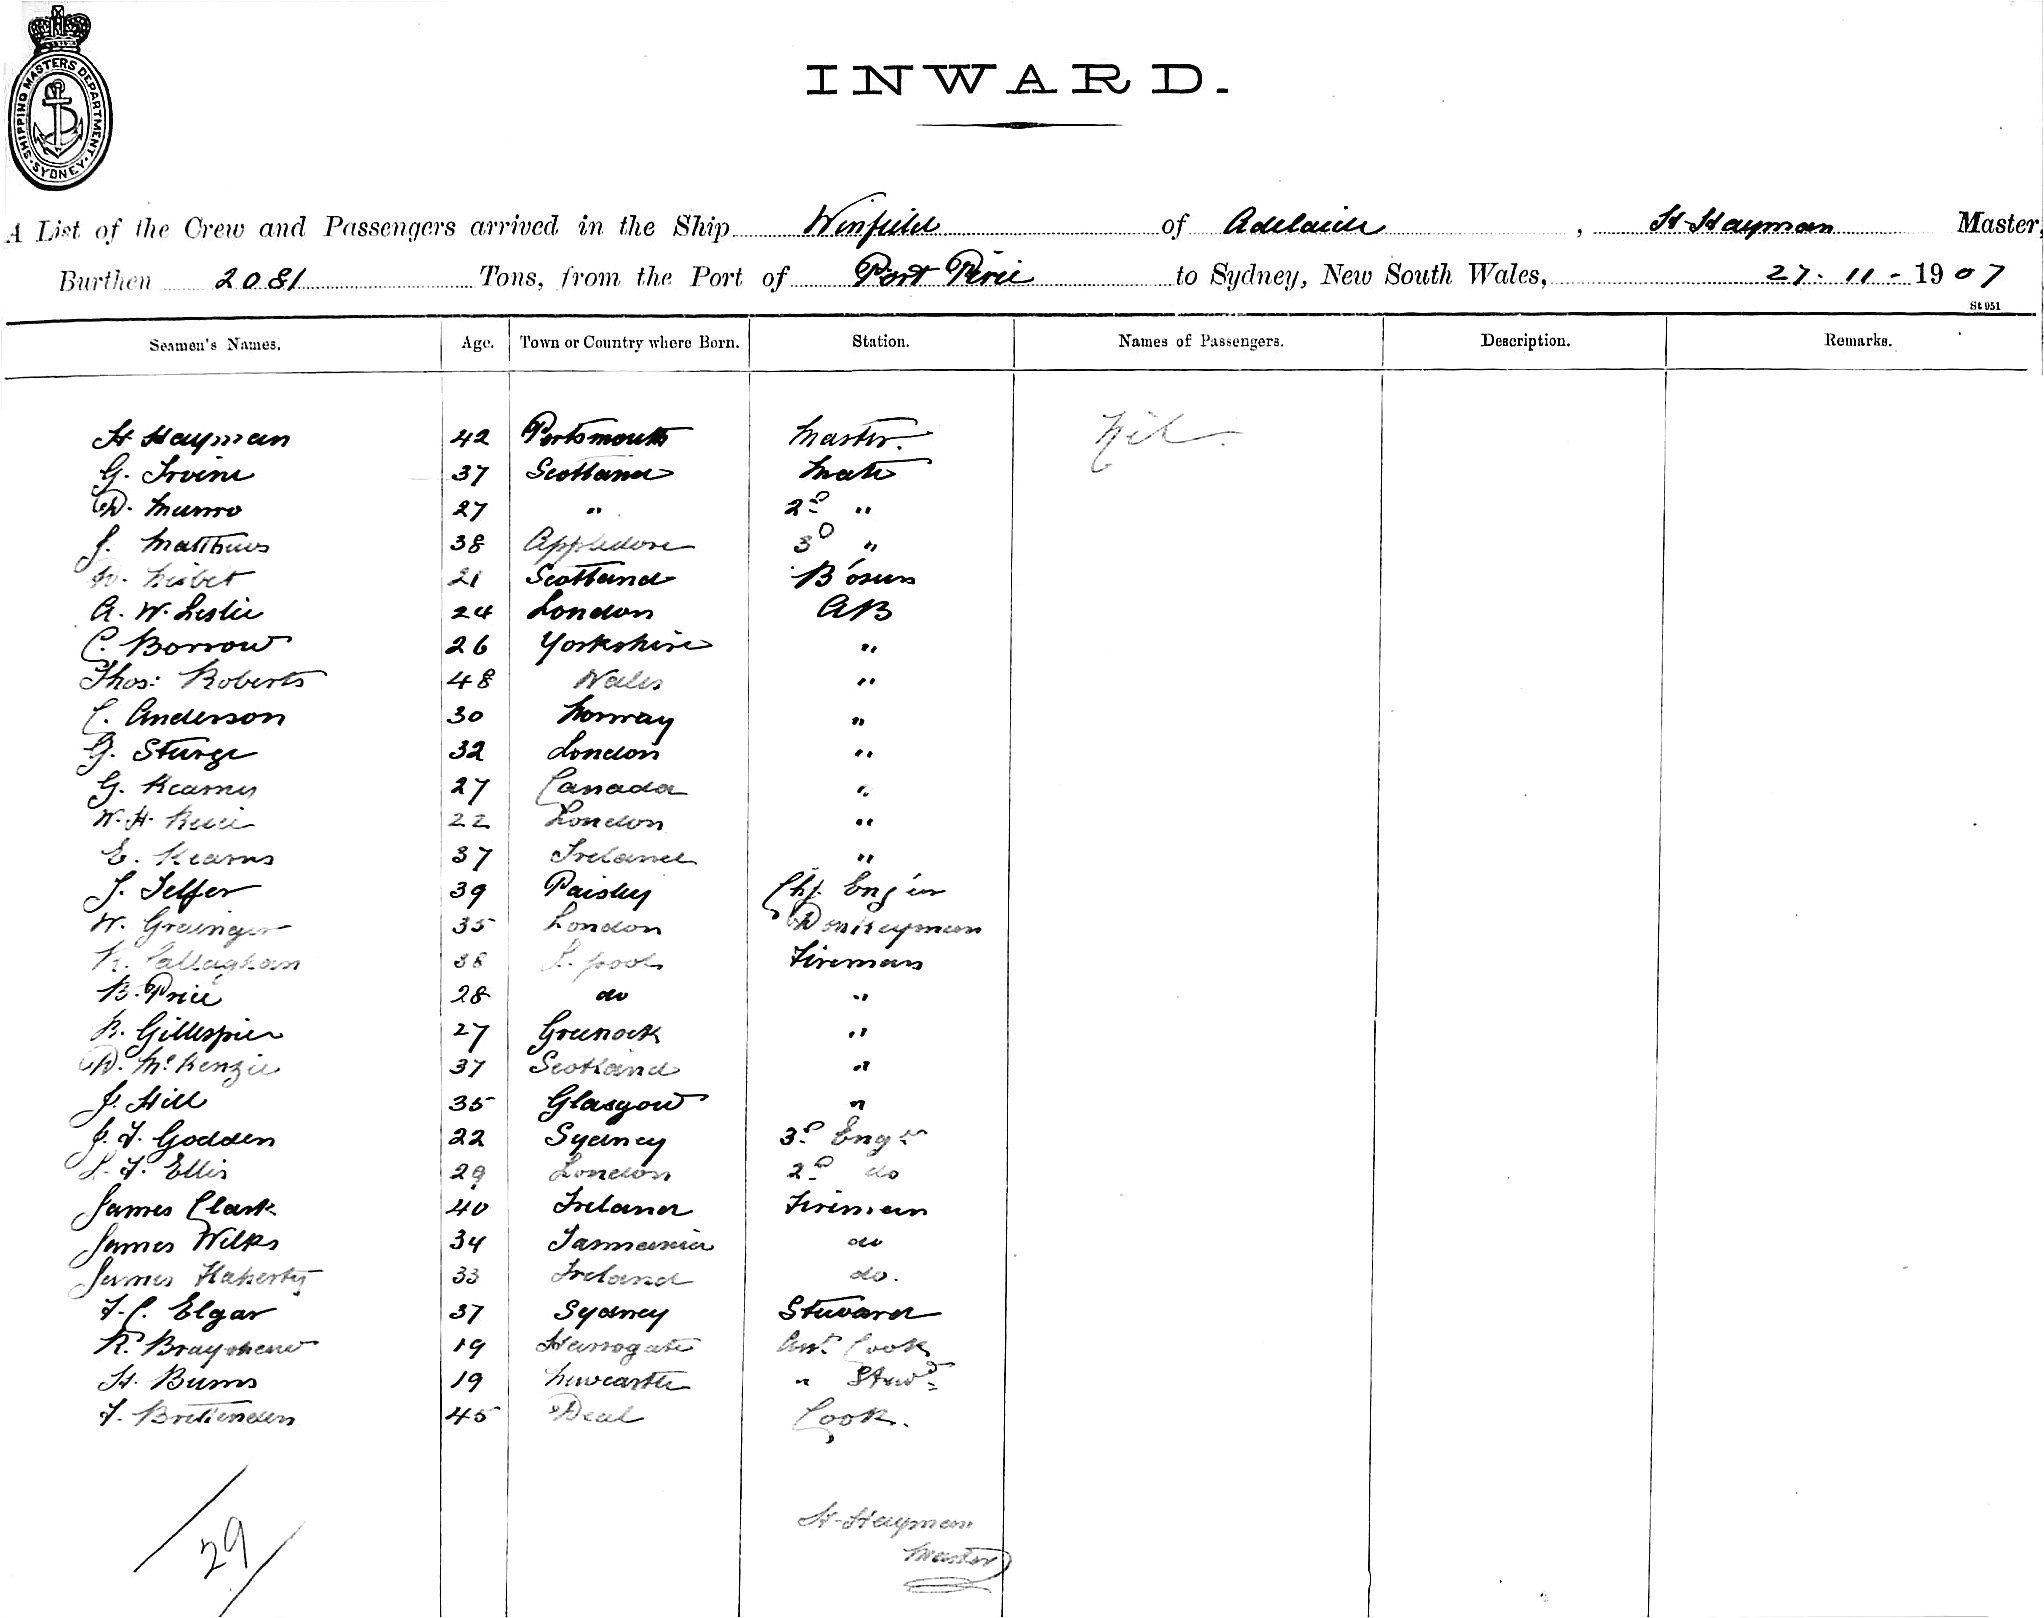 SHIPPING MASTERS DEPARTMENT · SYDNEY ·
INWARD.
A List of the Crew and Passengers arrived in the Ship Winfield of Adelaide, H Hayman Master,
Burthen 2081 Tons, from the Port of Port Pirie to Sydney, New South Wales, 27-11-1907
St 951
Seamen's Names. Age. Town or Country where Born. Station. Names of Passengers. Description. Remarks.
H Hayman 42 Portsmouth Master. Nil.
G. Irvine 37 Scotland Mate
D. Munro 27 " 2D "
J. Matthews 38 Appledore 3D "
Nisbet 21 Scotland B'osun
A. W. Leslie 24 London AB
C. Borrow 26 Yorkshire "
Thos: Roberts 48 Wales "
C. Anderson 30 Norway "
G. Sturge 32 London "
G. Kearney 27 Canada "
W. H. 22 London "
E. Kearns 37 Ireland "
J. Telfer 39 Paisley Chf. Eng'er
W. Grainger 35 London Donkeyman
Callaghan 38 L. pool Fireman
B. Price 28 do "
R. Gillespie 27 Greenock "
D. McKenzie 37 Scotland "
J. Hill 35 Glasgow "
J. F. Godden 22 Sydney 3D Engr
L. F. Ellis 29 London 2D do
James Clark 40 Ireland Fireman
James Wilks 34 Tasmania do
James Flaherty 33 Ireland do.
F. C. Elgar 37 Sydney Steward
R. Brayshaw 19 Harrogate Asst. Cook
H. Burns 19 Newcastle " Stewd
F. Brettenden 45 Deal Cook.
29
H Hayman
Master